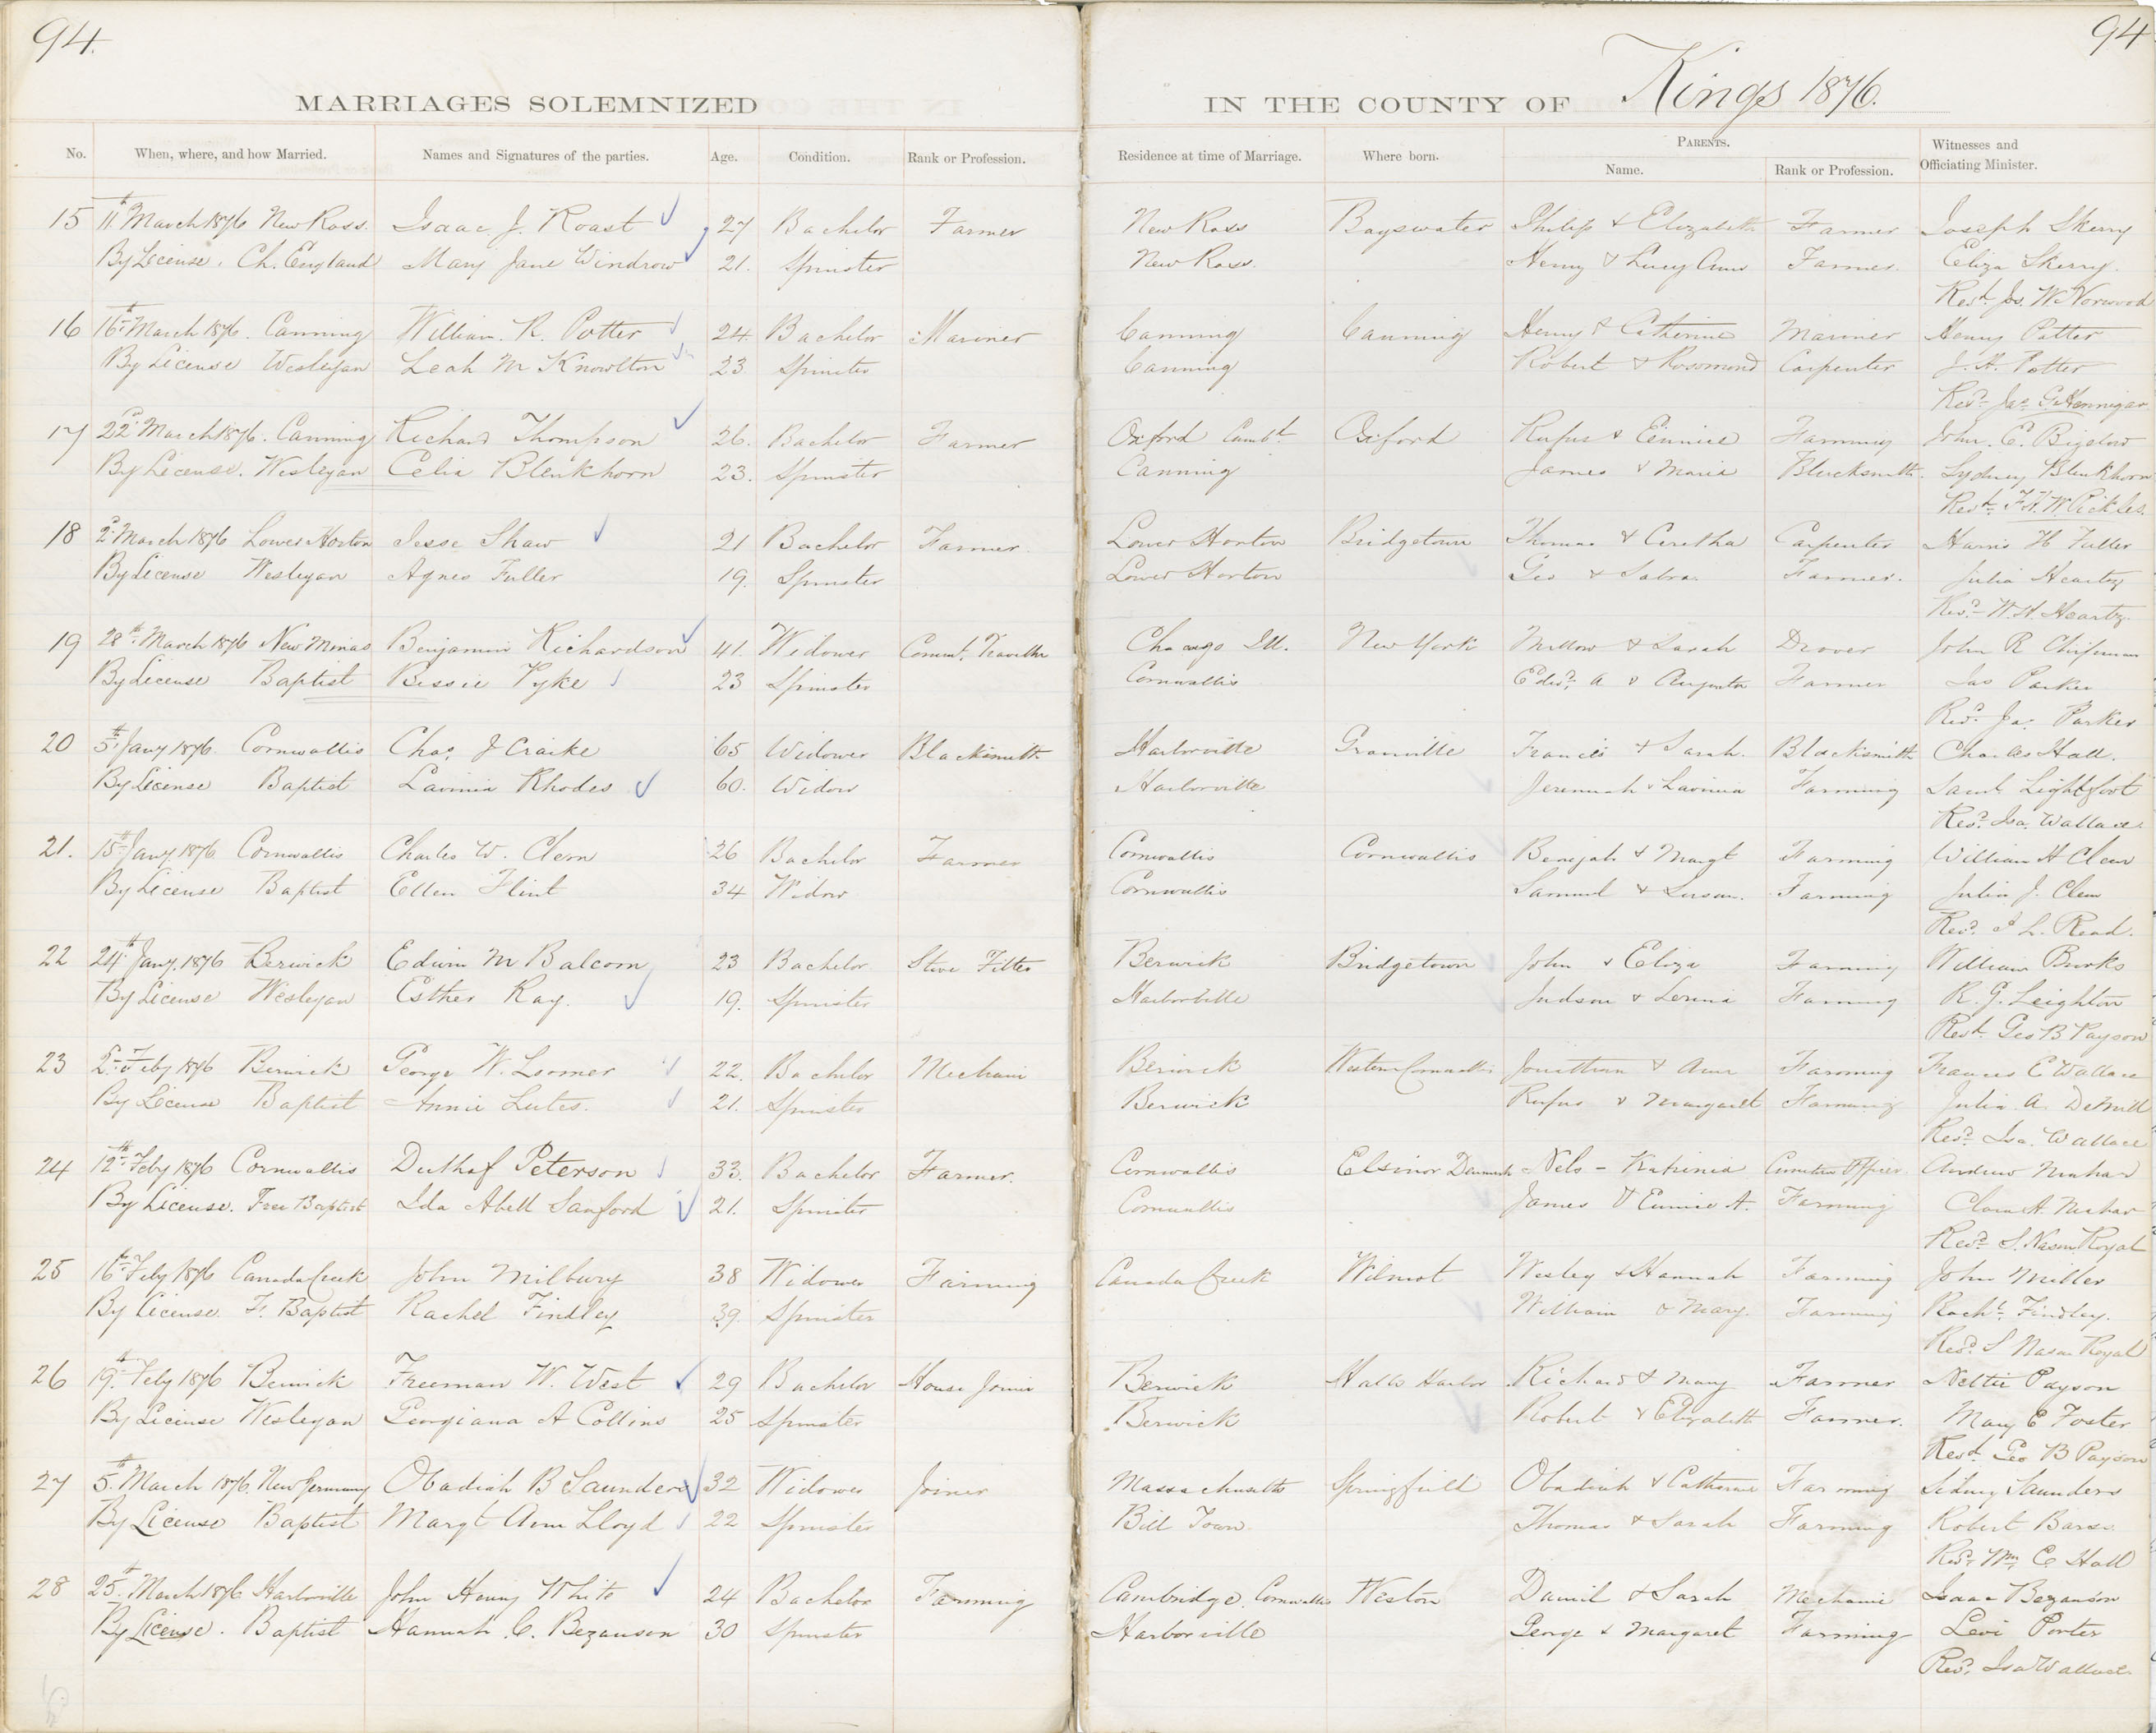 94.
94
MARRIAGES SOLEMNIZED IN THE COUNTY OF Kings 1876.
No. When, where, and how Married. Names and Signatures of the parties. Age. Condition. Rank or Profession. Residence at time of Marriage. Where born. PARENTS. Name. Rank or Profession. Witnesses and Officiating Minister.
15 11th March 1876 New Ross. Isaac J. Roast 27 Bachelor Farmer New Ross Bayswater Philip & Elizabeth Farmer Joseph Skerry
By License. Ch. England Mary Jane Windrow 21. Spinster New Ross. Henry & Lucy Ann Farmer. Eliza Skerry.
Revd. Jos. W. Norwood
16 16th March 1876. Canning William. R. Potter 24. Bachelor Mariner Canning Canning Henry & Catherine Mariner Henry Potter
By License Wesleyan Leah M Knowlton 23 Spinster Canning Robert & Rosomond Carpenter J. H. Potter
Revd. Jas. G. Hennigar
17 22d March 1876. Canning Richard Thompson 26. Bachelor Farmer Oxford Cumbd. Oxford Rufus & Eunice Farming John. E. Bigelow
By License. Wesleyan Celia Blenkhorn 23. Spinster Canning James & Maria Blacksmith. Sydney Blenkhorn
Revd. F. H. W. Pickles.
18 2d March 1876 Lower Horton Jesse Shaw 21 Bachelor Farmer. Lower Horton Bridgetown Thomas & Ceretha Carpenter Harris H Fuller
By License Wesleyan Agnes Fuller 19. Spinster Lower Horton Geo & Sabra Farmer. Julia Heartz
Revd. W. H. Heartz.
19 28th March 1876 New Minas Benjamin Richardson 41. Widower Comml. Traveller Chicago Ill. New York & Sarah Drover John R Chipman
By License Baptist Bessie Pyke 23 Spinster Cornwallis Edwd. A & Augusta Farmer Jas Parker
Revd. Ja. Parker
20 5th Jany 1876. Cornwallis Chas. J Craike 65 Widower Blacksmith Harborville Granville Francis & Sarah. Blacksmith Charles Hall.
By License Baptist Lavinia Rhodes 60. Widow Harborville Jeremiah & Lavinia Farming Saml. Lightfoot
Revd. Isa. Wallace
21. 15th Jany 1876 Cornwallis Charles W. Clem 26 Bachelor Farmer Cornwallis Cornwallis Benejah & Margt Farming William H Clem
By License Baptist Ellen Flint 34 Widow Cornwallis Samuel & Susan. Farming Julia J. Clem
Revd. J L. Read.
22 24th Jany. 1876 Berwick Edwin M Balcom 23 Bachelor Stove Fitter Berwick Bridgetown John & Eliza Farming William Burks
By License Wesleyan Esther Ray. 19. Spinster Harborville Judson & Farming R. G. Leighton
Revd. Geo B Payson
23 2d Feby 1876 Berwick George W. Loomer 22. Bachelor Mechanic Berwick Western Cornwallis Jonathan & Ann Farming Frances E Wallace
By License Baptist Annie Lutes. 21. Spinster Berwick Rufus & Margaret Farming Julia A. DeMill
Revd. Isa. Wallace
24 12th Feby 1876 Cornwallis Duthaf Peterson 33. Bachelor Farmer. Cornwallis Elsinor Denmark Nels - Officer Andrew
By License. Free Baptist Ida Abell Sanford 21. Spinster Cornwallis James & Eunice A. Farming Clara A.
Revd. S. Nason Royal
25 16th Feby 1876 Canada Creek John Milbury 38 Widower Farming Canada Creek Wilmot Wesley & Hannah Farming John Miller
By License. F. Baptist Rachel Findley 39. Spinster William & Mary. Farming Rachl. Findley.
Revd. S Nason Royal
26 19th Feby 1876 Berwick Freeman W. West 29 Bachelor House Joiner Berwick Halls Harbor Richard & Mary Farmer Nettie Payson
By License Wesleyan Georgiana A Collins 25 Spinster Berwick Robert & Elizabeth Farmer. Mary E Foster
Revd. Geo B Payson
27 5th March 1876. New Germany Obadiah B Saunders 32 Widower Joiner Massachusetts Springfield Obadiah & Catharine Farming Sidney Saunders
By License Baptist Margt Ann Lloyd 22 Spinster Bill Town. Thomas & Sarah Farming Robert Barss
Revd. Wm. E Hall
28 25th March 1876 Harborville John Henry White 24 Bachelor Farming Cambridge, Cornwallis Weston Daniel & Sarah Mechanic Isaac Bezanson
By License. Baptist Hannah C. Bezanson 30 Spinster Harborville George & Margaret Farming Levi Porter
Revd. Isa Wallace